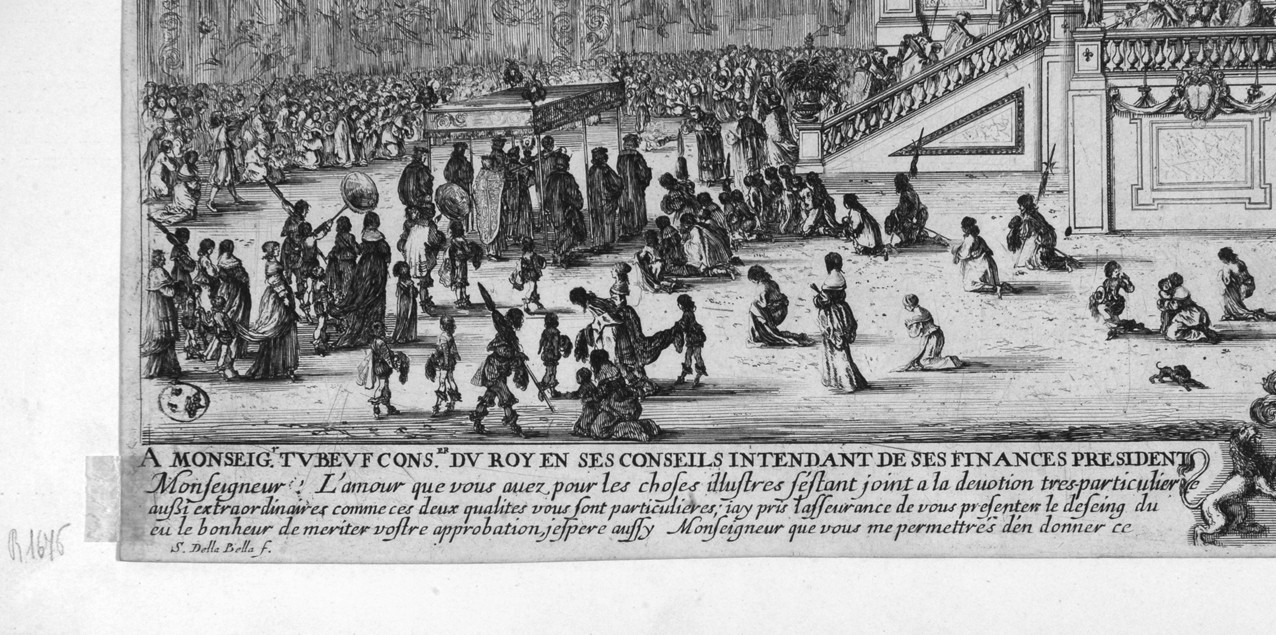 A MONSEIG.R TVBEVF CONS.ER DV ROY EN SES CONSEILS INTENDANT DE SES FINANCES PRESIDENT
Monseigneur L'amour que vous auez pour les choses illustres s'éstant joint a la deuotion tres-particuliere
aussi extraordinaires comme ces deux qualites vous sont particulieres, jay pris l'asseurance de vous presenter le deseing du
eu le bonheur de meriter vostre approbation, jespere aussy Monseigneur que vous me permettrés d'en donner ce
S. Della Bella f.
R 1646